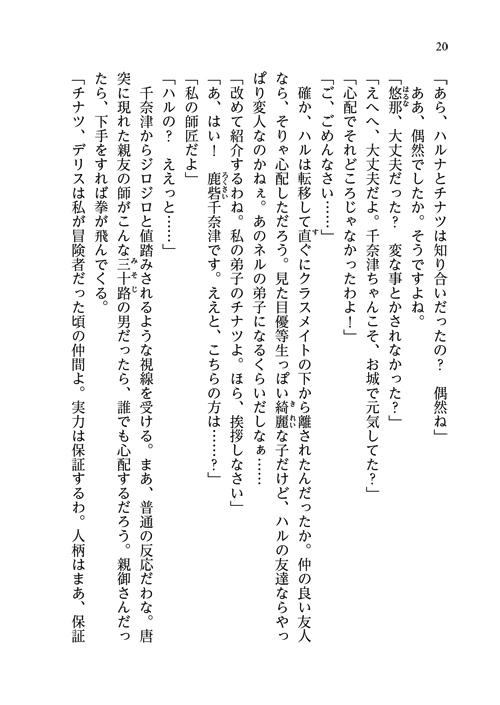 20
「あら、ハルナとチナツは知り合いだったの？　偶然ね」
ああ、偶然でしたか。そうですよね。
「悠那、大丈夫だった？　変な事とかされなかった？」
「えへへ、大丈夫だよ。千奈津ちゃんこそ、お城で元気してた？」
「心配でそれどころじゃなかったわよ！」
「ご、ごめんなさい……」
確か、ハルは転移して直ぐにクラスメイトの下から離されたんだったか。仲の良い友人
なら、そりゃ心配しただろう。見た目優等生っぽい綺麗な子だけど、ハルの友達ならやっ
ぱり変人なのかねぇ。あのネルの弟子になるくらいだしなぁ……
「改めて紹介するわね。私の弟子のチナツよ。ほら、挨拶しなさい」
「あ、はい！　鹿砦千奈津です。ええと、こちらの方は……？」
「私の師匠だよ」
「ハルの？　ええっと……」
千奈津からジロジロと値踏みされるような視線を受ける。まあ、普通の反応だわな。唐
突に現れた親友の師がこんな三十路の男だったら、誰でも心配するだろう。親御さんだっ
たら、下手をすれば拳が飛んでくる。
「チナツ、デリスは私が冒険者だった頃の仲間よ。実力は保証するわ。人柄はまあ、保証